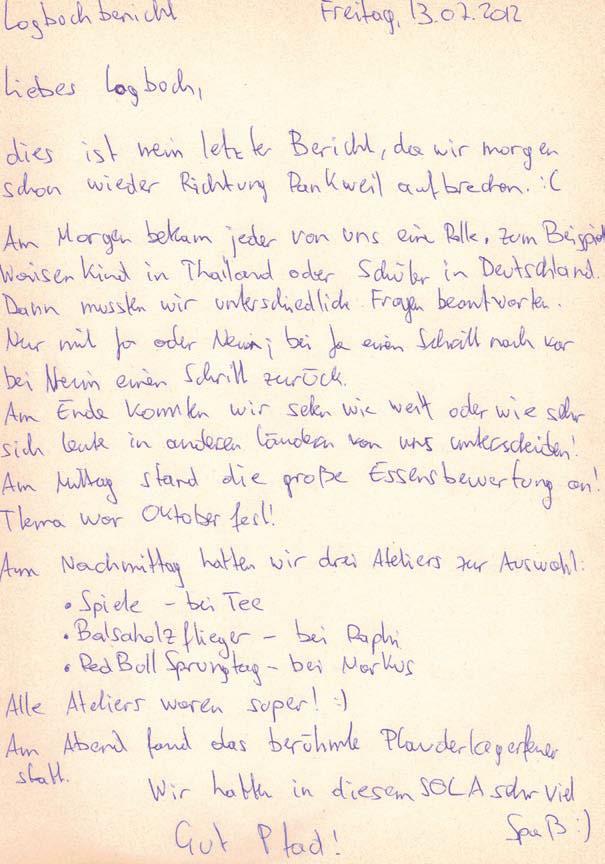 Logbochbericht Freitag, 13.07.2012
Liebes Logboch,
dies ist mein letzter Bericht, da wir morgen
schon wieder Richtung Rankweil aufbrechen. :C
Am Morgen bekam jeder von uns eine Rolle, zum Beispiel
Waisenkind in Thailand oder Schüler in Deutschland.
Dann mussten wir unterschiedlich Fragen beantworten.
Nur mit Ja oder Nein; bei Ja einen Schritt nach vor
bei Nein einen Schritt zurück.
Am Ende konnten wir sehen wie weit oder wie sehr
sich Leute in anderen Ländern von uns unterscheiden!
Am Mittag stand die große Essensbewertung an!
Thema war Oktoberfest!
Am Nachmittag hatten wir drei Ateliers zur Auswahl:
• Spiele - bei Tee
• Balsaholzflieger - bei Raphi
• Red Bull Sprungtag - bei Markus
Alle Ateliers waren super! :)
Am Abend fand das berühmte Plauderlagerfeuer
statt.
Wir hatten in diesem SOLA sehr viel
Spaß :)
Gut Pfad!